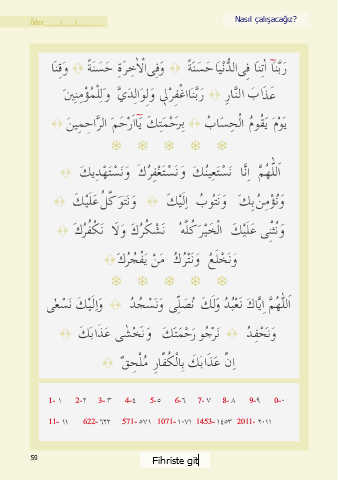 Nasıl çalışacağız?
رَبَّنَا اٰتِنَا فِى الدُّنْيَا حَسَنَةً ۞ وَفِى الْاٰخِرَةِ حَسَنَةً ۞ وَقِنَا
عَذَابَ النَّارِ ۞ رَبَّنَا اغْفِرْلٖى وَلِوَالِدَىَّ وَلِلْمُؤْمِنٖينَ
يَوْمَ يَقُومُ الْحِسَابُ ۞ بِرَحْمَتِكَ يَٓا اَرْحَمَ الرَّاحِمٖينَ ۞
اَللّٰهُمَّ اِنَّا نَسْتَعٖينُكَ وَنَسْتَغْفِرُكَ وَنَسْتَهْدٖيكَ ۞
وَنُؤْمِنُ بِكَ وَنَتُوبُ اِلَيْكَ ۞ وَنَتَوَكَّلُ عَلَيْكَ ۞
وَنُثْنٖى عَلَيْكَ الْخَيْرَ كُلَّهُ نَشْكُرُكَ وَلَا نَكْفُرُكَ ۞
وَنَخْلَعُ وَنَتْرُكُ مَنْ يَفْجُرُكَ ۞
اَللّٰهُمَّ اِيَّاكَ نَعْبُدُ وَلَكَ نُصَلّٖى وَنَسْجُدُ ۞ وَاِلَيْكَ نَسْعٰى
وَنَحْفِدُ ۞ نَرْجُو رَحْمَتَكَ وَنَخْشٰى عَذَابَكَ ۞
اِنَّ عَذَابَكَ بِالْكُفَّارِ مُلْحِقٌ ۞
1- ١ 2- ٢ 3- ٣ 4- ٤ 5- ٥ 6- ٦ 7- ٧ 8- ٨ 9- ٩ 0- ٠
11- ١١ 622- ٦٢٢ 571- ٥٧١ 1071- ١٠٧١ 1453- ١٤٥٣ 2011- ٢٠١١
59
Fihriste git